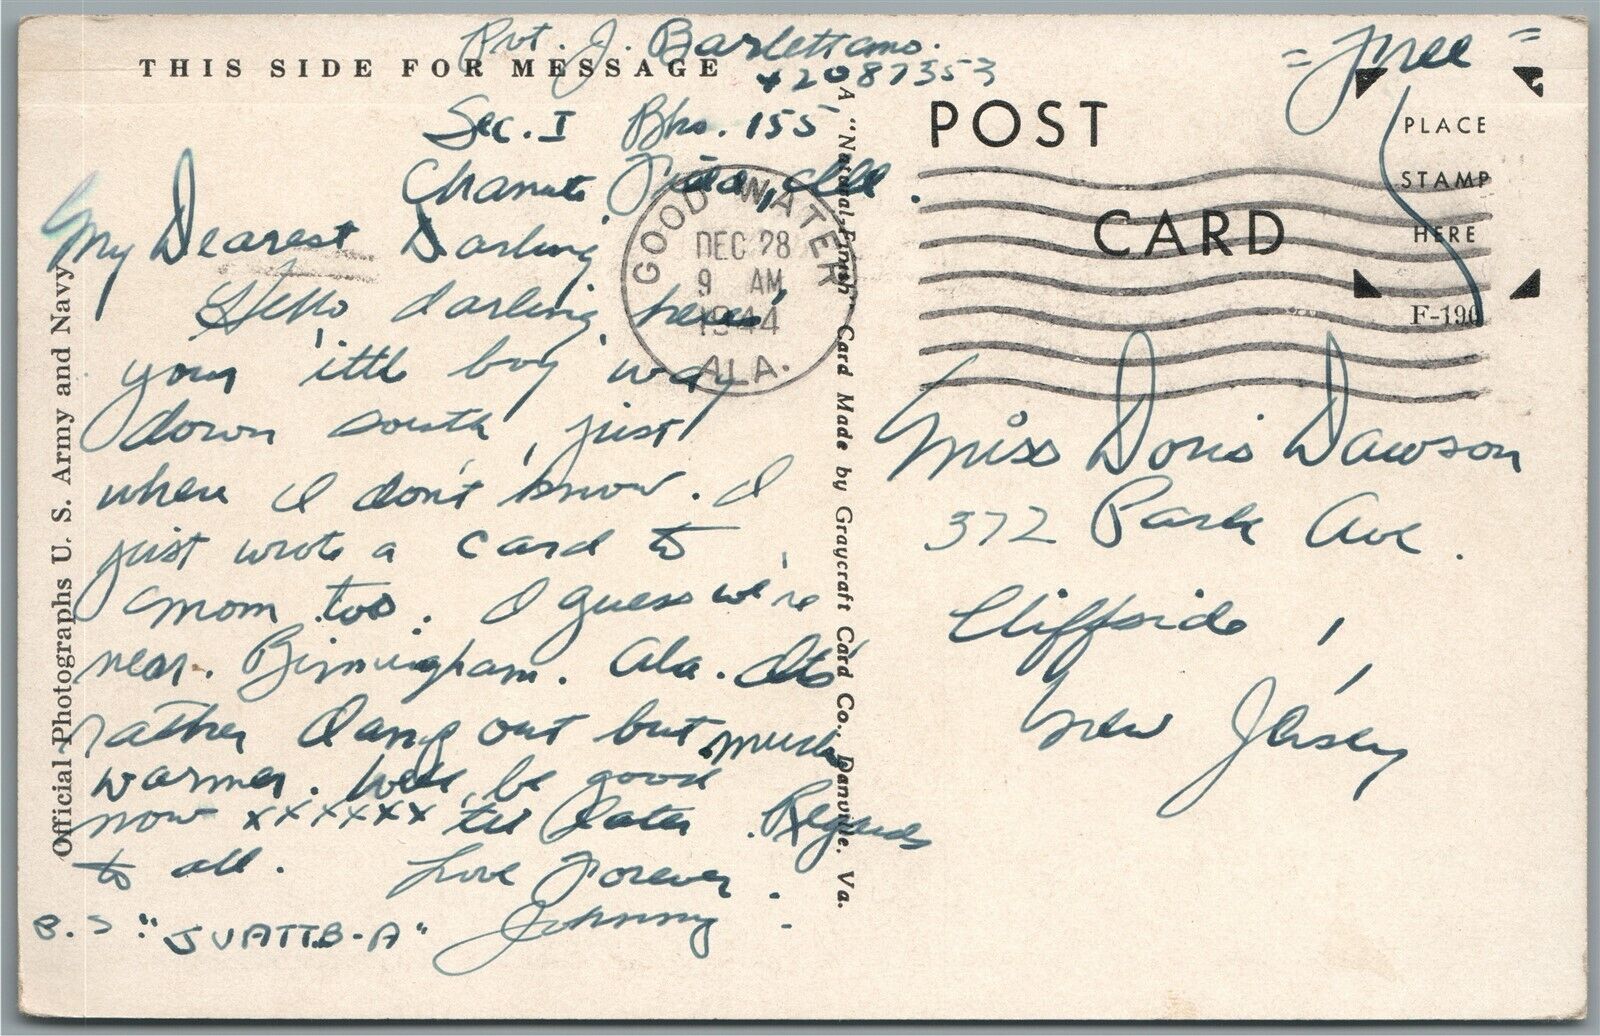 Pvt. J. Barlettano.
THIS SIDE FOR MESSAGE
42087353
Sec. I Bks. 155
Chanute Field, Ill.
My Dearest Darling,
Hello darling, here's
your 'ittle boy 'way
down south, just
where I don't know. I
just wrote a card to
Mom too. I guess we're
near Birmingham. Ala. It's
rather damp out but much
warmer. Well, be good
now xxxxxx 'til later. Regards
to all. Love Forever.
Johnny
"JVATT.B-A"
Official Photographs U. S. Army and Navy
A "Natural-Finish" Card Made by Graycraft Card Co., Danville, Va.
GOOD WATER
DEC 28
9 AM
1944
ALA.
POST
CARD
= Free =
PLACE
STAMP
HERE
F-190
Miss Doris Dawson
372 Park Ave.
Cliffside,
New Jersey